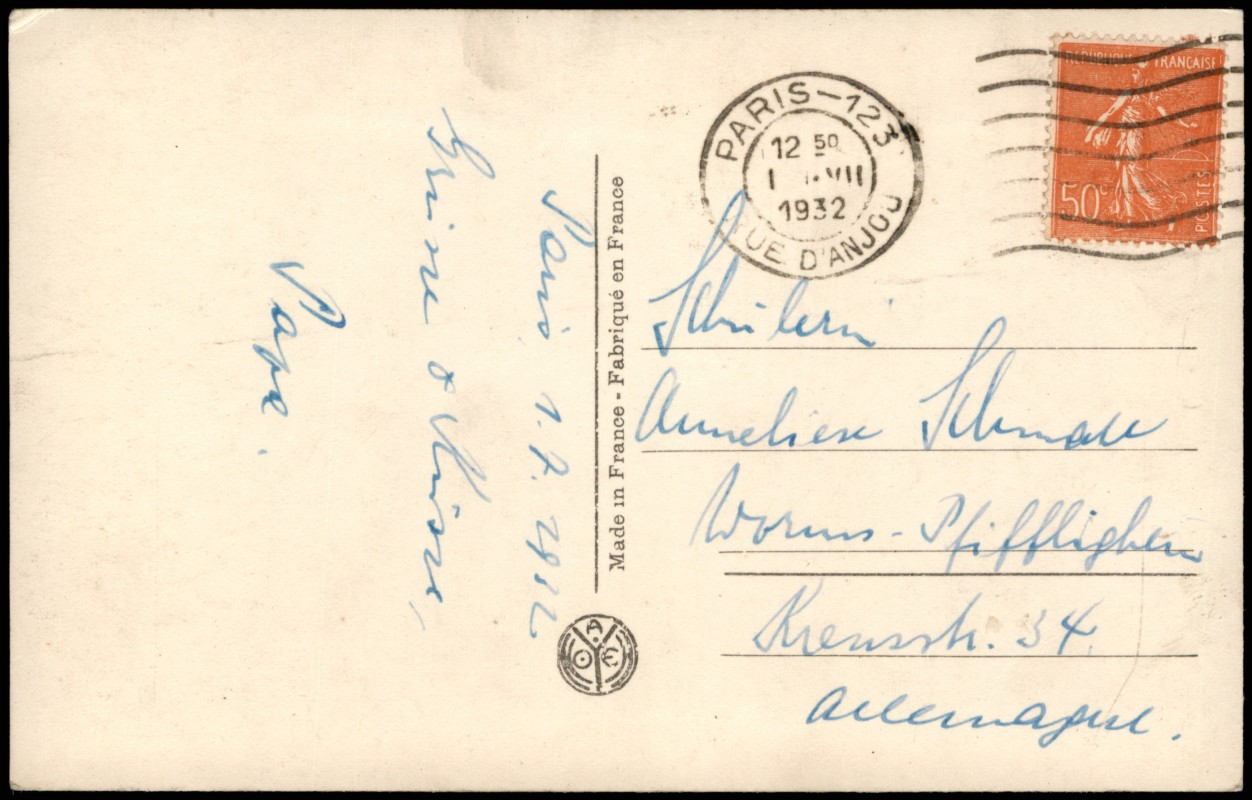 Paris 1.7.1932
Grüsse & Küsse,
Papa.
Made in France - Fabriqué en France
PARIS-123
12 50
1 VII
1932
RUE D'ANJOU
REPUBLIQUE FRANÇAISE
50c
POSTES
Schülerin
Anneliese
Worms-Pfiffligheim
Kreusstr. 34
Allemagne.